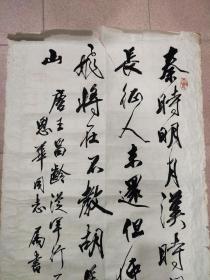 秦時明月漢時
長征人未還但使
飛將在不教胡
山
唐王昌齡從軍行
恩華同志屬書